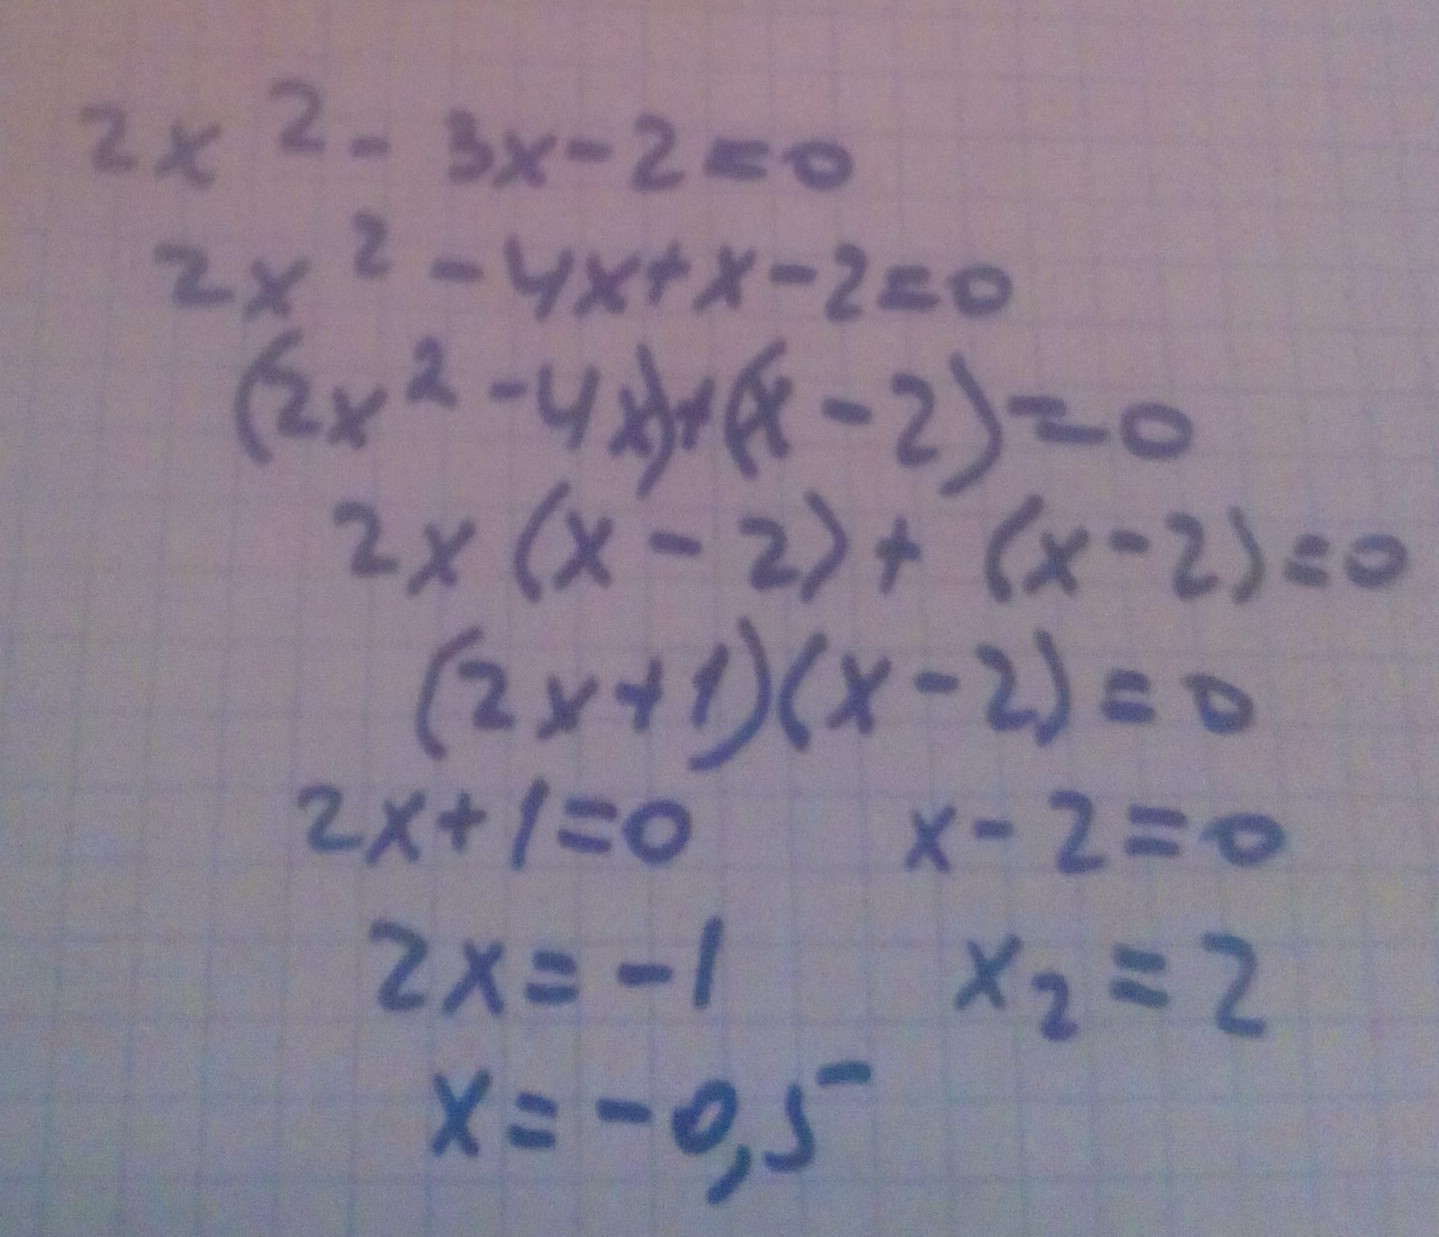 2x² - 3x - 2 = 0
2x² - 4x + x - 2 = 0
(2x² - 4x) + (x - 2) = 0
2x (x - 2) + (x - 2) = 0
(2x + 1)(x - 2) = 0
2x + 1 = 0 x - 2 = 0
2x = -1 x₂ = 2
x = -0,5